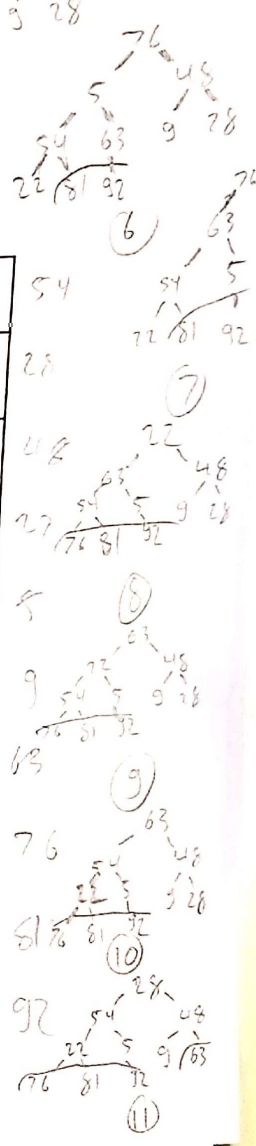 9 28
76
5 48
54 63 9 28
22 81 92
6
76
63
54 54 5
22 81 92
28
7
22
48 63 48
54 5 9 28
27 76 81 92
5 8
63
22 48
9 54 5 9 28
76 81 92
63
9
63
76 54 48
22 5 9 28
81 76 81 92
10
28
92 54 48
22 5 9 63
76 81 92
11